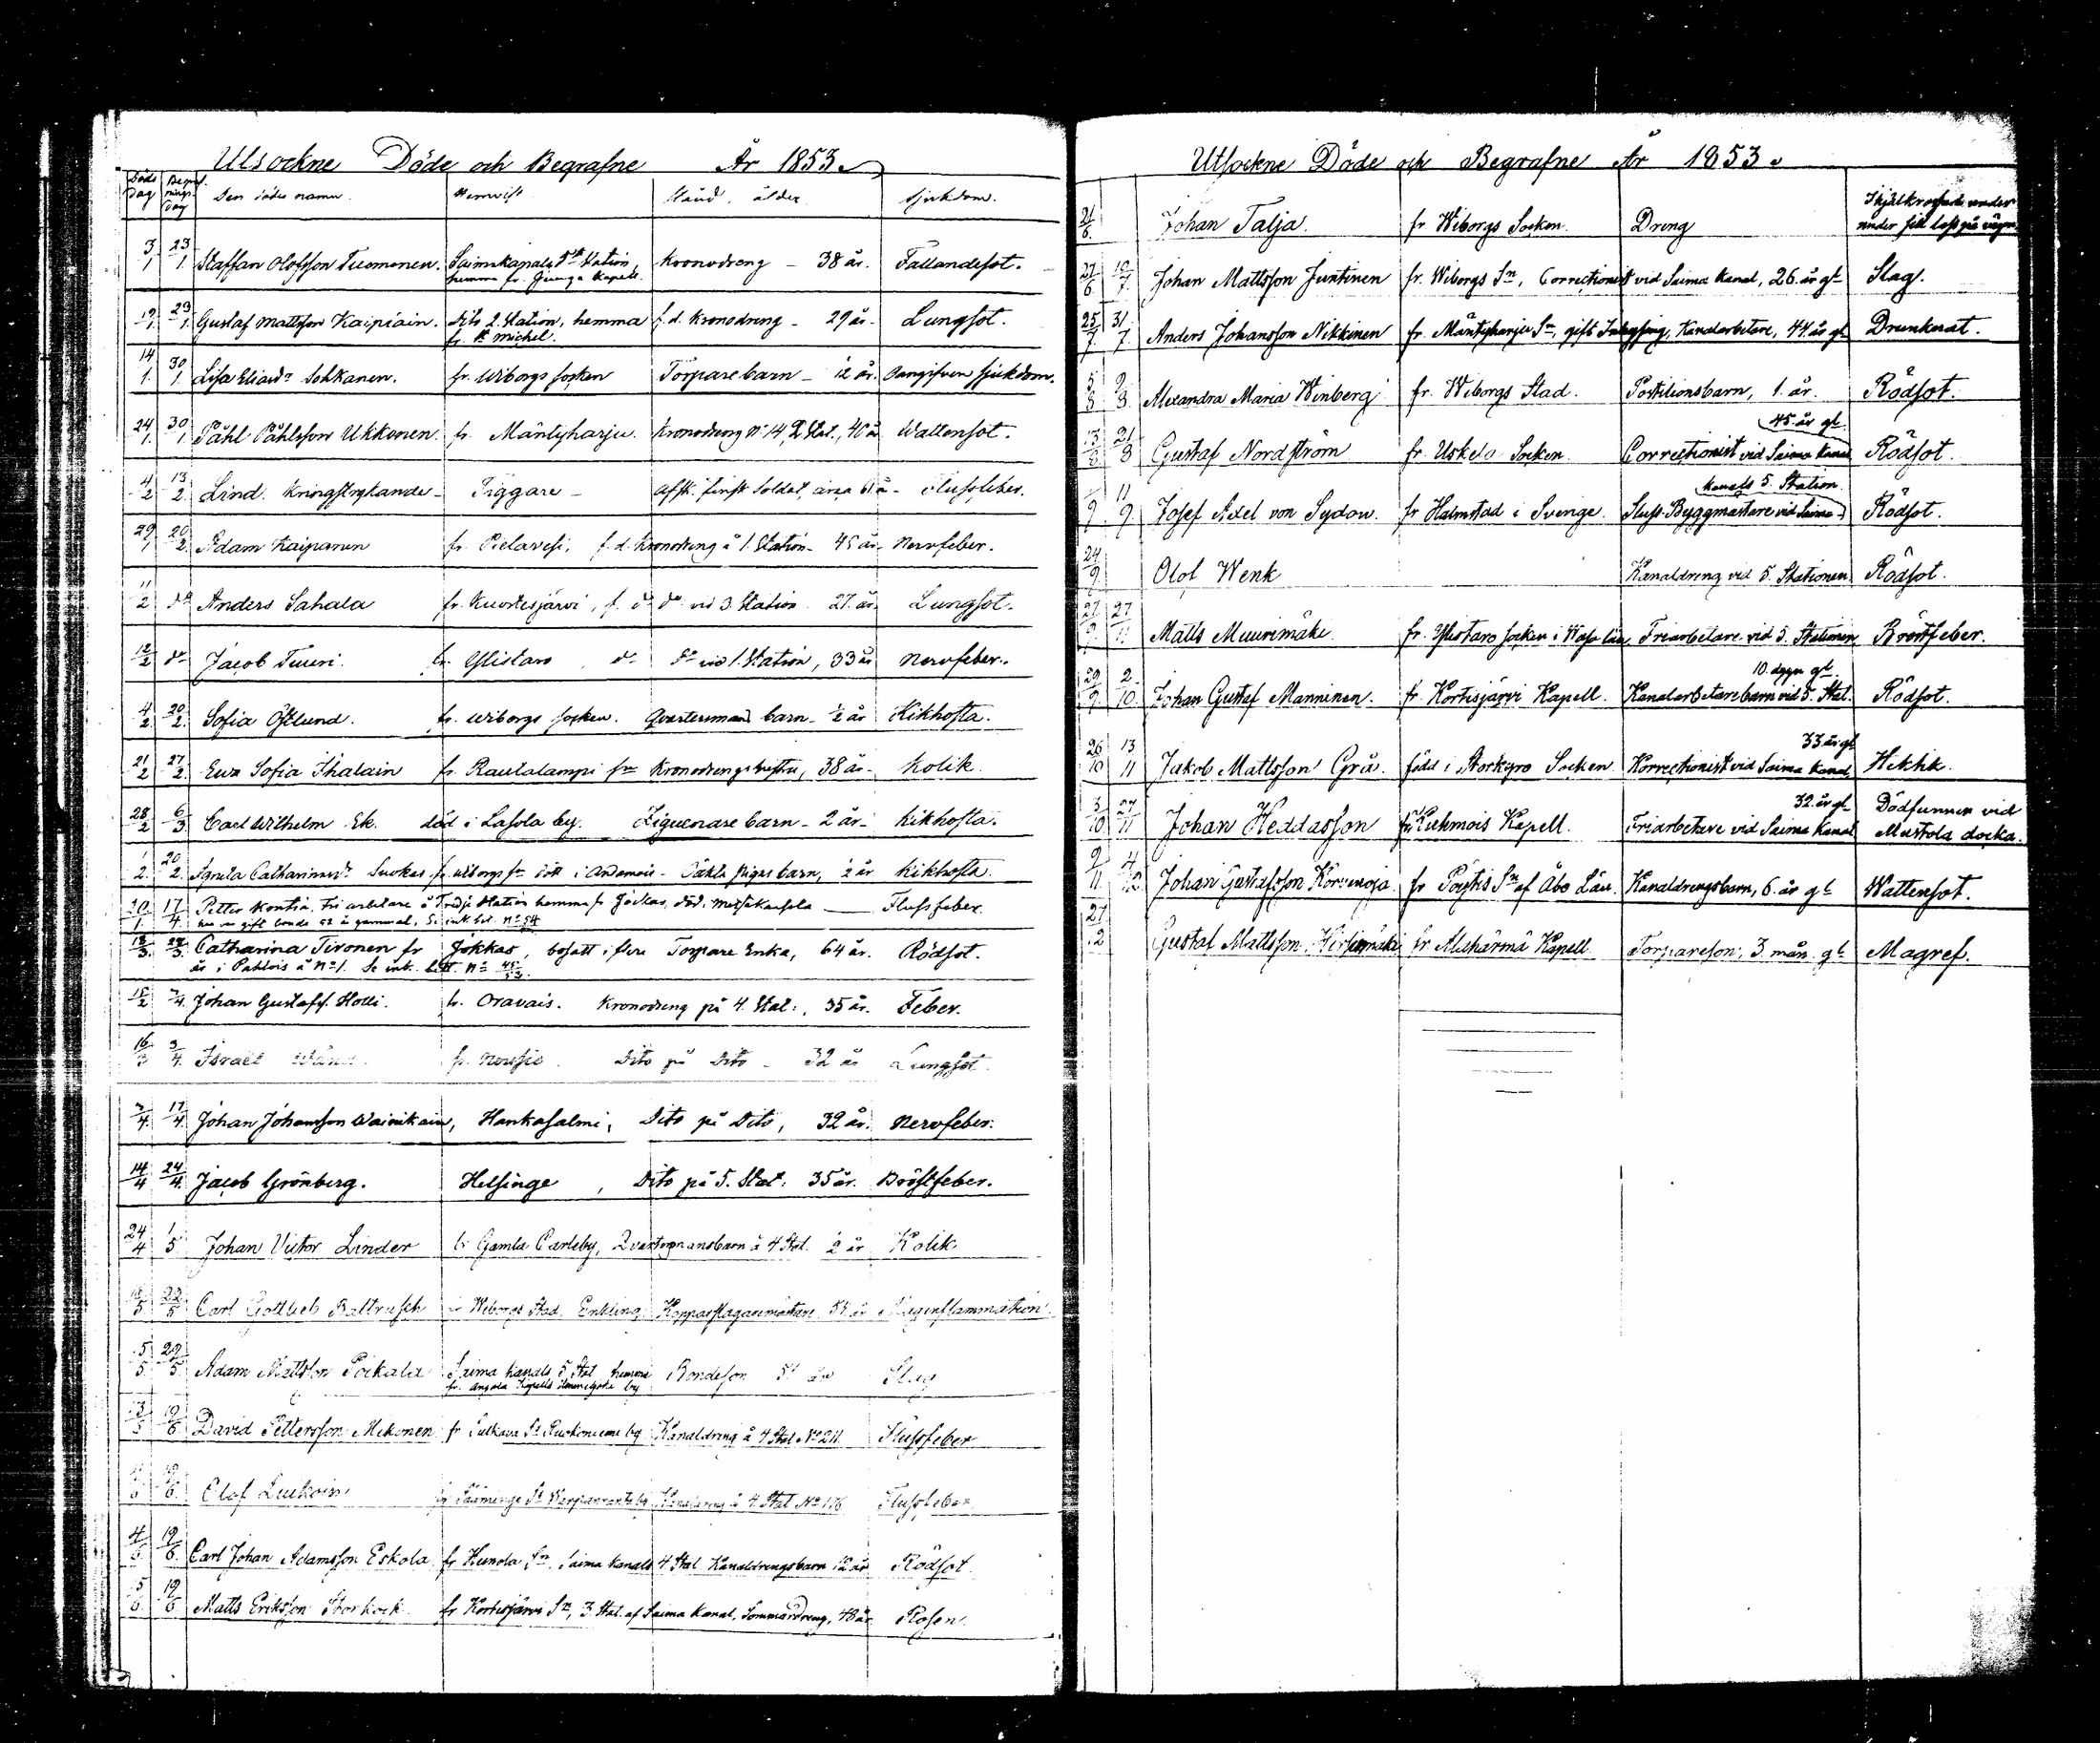 Utsockne Döde och Begrafne År 1853
Döds Dag Begrafnings Dag Den dödes namn. Hemvist Stånd, ålder Sjukdom.
3/1 23/1 Staffan Olofsson Tuomonen. Saima Kanals 5te Station, Kronodreng - 38 år. Fallandesot.
hemma fr. Kapell.
19/1 23/1 Gustaf Mattsson Kaipiain. Dito 2. Station, hemma f. d. Kronodreng - 29 år. Lungsot.
fr. St Michel.
14/1 30/1 Lisa Eliasdr Sohkanen. fr. Wiborgs socken Torpare barn - 12 år. Oangifven sjukdom.
24/1 30/1 Påhl Påhlsson Ukkonen fr. Mäntyharju. Kronodreng No 14, 2 Stat., 40 år Wattensot.
4/2 13/2 Lind. Kringstrykande - Tiggare - Afsk. finsk Soldat, circa 61 å - Flussfeber.
29/1 20/2 Adam Kaipanen fr. Pielavesi, f. d. Kronodreng å 1. Station - 45 år - Nervfeber.
11/2 do Anders Sahala fr. Kuortesjärvi, f. do do vid 3. Station. 27. år. Lungsot.
12/2 do Jacob Tuuri. fr. Ylistaro, do do vid 1. Station, 33 år Nervfeber.
4/2 20/2 Sofia Östlund. fr. Wiborgs socken. Qvartersmans barn - ½ år Kikhosta.
21/2 27/2 Eva Sofia Ihalain fr. Rautalampi sn Kronodrengshustru, 38 år - Kolik.
28/2 6/3 Carl Wilhelm Ek. död i Lasola by. Ziguenare barn - 2 år - Kikhosta.
1/2 20/2 Catharinasdr Suokas fr. Wiborgs sn född i barn, ½ år Kikhosta.
20/1 17/4 Petter Kontia, Fri arbetare å Tredje Station hemma fr Jockas, död i Flussfeber.
gift bonde 52 år gammal. Se ink. bet. No 54
12/3 28/3 Catharina Tironen fr Jokkas, bosatt i flere Torpare Enka, 64 år. Rödsot.
år i Pahlois å No 1. Se ink. bett. No
15/2 3/4 Johan Gustafs. Holli. fr. Oravais. Kronodreng på 4. Stat:, 35 år. Feber.
16/3 3/4 Israel fr. Nousis. Dito på Dito - 32 år Lungsot.
3/4 17/4 Johan Johansson Wainikain, Hankasalmi, Dito på Dito, 32 år. Nervfeber.
14/4 24/4 Jacob Grönberg. Helsinge, Dito på 5. Stat. 35 år. Bröstfeber.
24/4 1/5 Johan Victor Linder fr Gamla Carleby, Qvartersmansbarn å 4 Stat. ½ år Kolik
22/5 Carl Gottlieb Baltrusch fr Wiborgs Stad, Enkling, Kopparslagaremästare
5/5 29/5 Adam Mattsson Poikala Saima kanals 5 Stat hemma Bondeson 51 år Slag
fr. Anjala Kapells by
13/5 19/6 David Pettersson Mikonen fr Sulkava Sn Ruokoniemi by Kanaldreng å 4 Stat No 211. Flussfeber
Olof Luikoin fr Säämenge Sn Kanaldreng å 4. Stat No 176 Flussfeber
4/6 19/6 Carl Johan Adamsson Eskola fr Hunola Sn, Saima kanals 4 Stat Kanaldrengsbarn 12 år Rödsot.
5/6 19/6 Matts Eriksson Storkock fr Kortisjärvi Sn, 3. Stat. af Saima Kanal, Sommardreng, 48 år Rosen.
Utsockne Döde och Begrafne År 1853.
21/6 Johan Talja. fr Wiborgs Socken. Dreng Ihjälkrossad under
under sitt lass på vägen
27/6 10/7 Johan Mattsson Juntinen fr. Wiborgs Sn, Correctionist vid Saima Kanal, 26. år gl Slag.
25/7 31/7 Anders Johansson Nikkinen fr. Mäntyharju Sn, gift Kanalarbetare, 44 år gl Drunknat.
5/8 9/8 Alexandra Maria Winberg fr. Wiborgs Stad. Postilionsbarn, 1 år. Rödsot.
45 år gl.
13/8 21/8 Gustaf Nordström fr. Uskela Socken. Correctionist vid Saima Kanal Rödsot.
kanals 5. Station.
9 11/9 Josef Axel von Sydow. fr Halmstad i Sverige. Sluss-Byggmästare vid Saima Rödsot.
24/9 Olof Wenk Kanaldreng vid 5. Stationen Rödsot.
27/9 27/11 Matts Muurimäki fr. Ylistaro socken i Wasa län Friarbetare vid 5. Stationen Bröstfeber.
10. dygn gl
29/9 2/10 Johan Gustaf Manninen. fr. Kortisjärvi Kapell. Kanalarbetarebarn vid 5. Stat. Rödsot.
33 år gl
26/10 13/11 Jakob Mattsson Grå. född i Storkyro Socken Korrectionist vid Saima Kanal Hektik.
32 år gl Dödfunnen vid
3/10 27/11 Johan Heddasson fr Kuhmois Kapell. Friarbetare vid Saima Kanal Mustola docka.
9/11 4/12 Johan Gustafsson Korvenoja fr Pöytis Sn af Åbo Län. Kanaldrengsbarn, 6. år gl Wattensot.
27/12 Gustaf Mattsson Hirsimäki fr Alahärmä Kapell Torpareson, 3. mån. gl Magref.